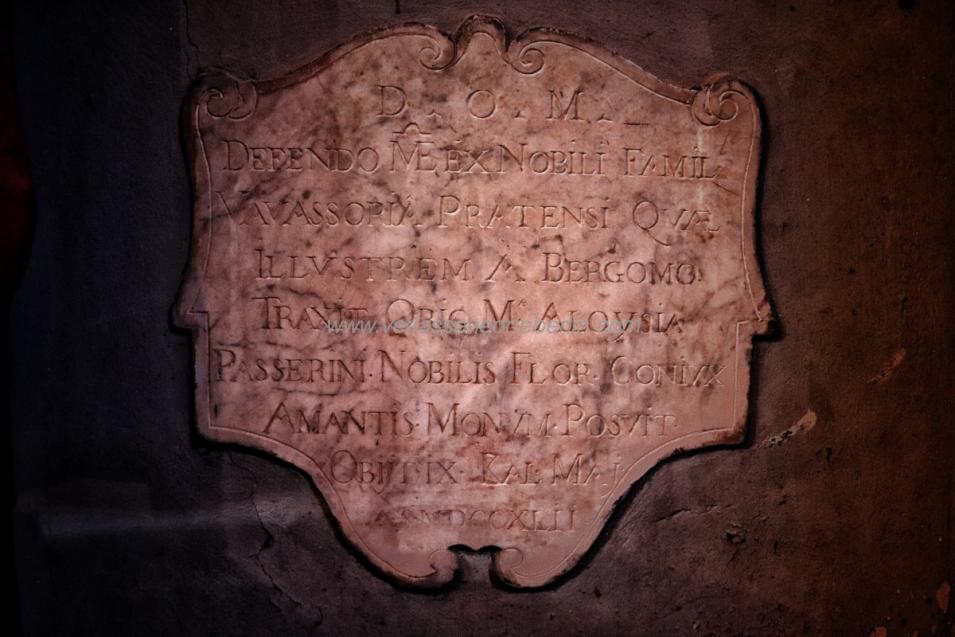 D. O. M.
DEFENDO MẼ EX NOBILI FAMIL.
VAVASSORIA PRATENSI QVÆ
ILLVSTREM A BERGOMO
TRAXIT ORIG. Mᴬ ALOYSIA
PASSERINI·NOBILIS FLOR·CONIVX
AMANTIS·MONVM·POSVIT
OBIJT IX·KAL·MAJ
MDCCXLII